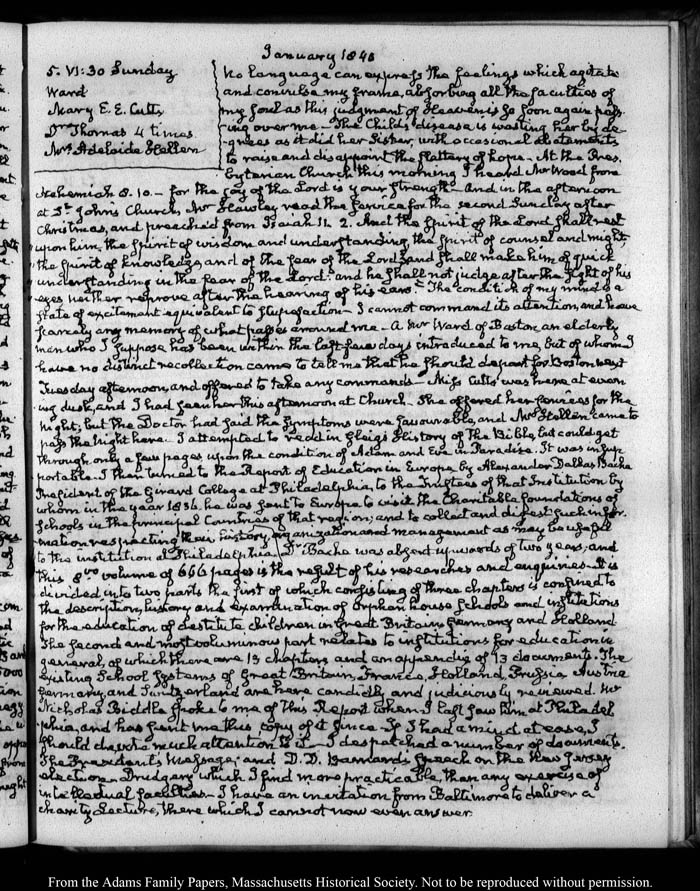 January 1840
5. VI:30 Sunday
Ward
Mary E. E. Cutts
Dr Thomas 4 times
Mrs Adelaide Hellen
No language can express the feelings which agitate
and convulse my frame, absorbing all the faculties of
my soul as this judgment of Heaven is so soon again pass-
ing over me — The Child's disease is wasting her by de-
grees as it did her Sister, with occasional abatements
to raise and disappoint the flattery of hope — At the Pres.
byterian Church this morning I heard Mr Wood from
Nehemiah 8. 10. — for the joy of the Lord is your strength — And in the afternoon
at St. John's Church, Mr Hawley read the service for the second Sunday after
Christmas, and preached from Isaiah 11. 2. And the Spirit of the Lord shall rest
upon him, the spirit of wisdom and understanding, the spirit of counsel and might,
the spirit of knowledge, and of the fear of the Lord, and shall make him of quick
understanding in the fear of the Lord: and he shall not judge after the sight of his
eyes neither reprove after the hearing of his ears — The condition of my mind is a
state of excitement equivalent to stupefaction — I cannot command its attention, and have
scarcely any memory of what passes around me — A Mr Ward of Boston an elderly
man who I suppose has been within the last few days introduced to me, but of whom I
have no distinct recollection came to tell me that he should depart for Boston next
Tuesday afternoon, and offered to take any commands — Miss Cutts was here at even-
ing dusk, and I had seen her this afternoon at Church — She offered her services for the
night, but the Doctor had said the symptoms were favourable, and Mrs Hellen came to
pass the night here. I attempted to read in Gleig's History of the Bible, but could get
through only a few pages, upon the condition of Adam and Eve in Paradise. It was insup-
portable. I then turned to the Report of Education in Europe by Alexander Dallas Bache
President of the Girard College at Philadelphia, to the Trustees of that Institution by
whom in the year 1836. he was sent to Europe to visit the Charitable foundations of
Schools in the principal Countries of that region; and to collect and digest such infor-
mation respecting their history, organization and management as may be useful
to the institution at Philadelphia. Dr Bache was absent upwards of two years, and
this 8vo volume of 666 pages is the result of his researches and enquiries — It is
divided into two parts the first of which consisting of three chapters is confined to
the description, history and examination of Orphan house Schools and institutions
for the education of destitute children in Great Britain, Germany and Holland
The second and most voluminous part relates to institutions for education in
general, of which there are 13 chapters and an appendix of 13 documents. The
existing School Systems of Great Britain, France, Holland, Prussia Austria
Germany, and Switzerland are here candidly and judiciously reviewed. Mr
Nicholas Biddle spoke to me of this Report when I last saw him at Philadel
phia, and has sent me this copy of it since — If I had a mind at ease, I
should devote much attention to it — I despatched a number of documents.
The President's Message, and D. D. Barnard's speech on the New Jersey
election — Drudgery which I find more practicable, than any exercise of
intellectual faculties — I have an invitation from Baltimore to deliver a
charity Lecture, there which I cannot now even answer.
From the Adams Family Papers, Massachusetts Historical Society. Not to be reproduced without permission.